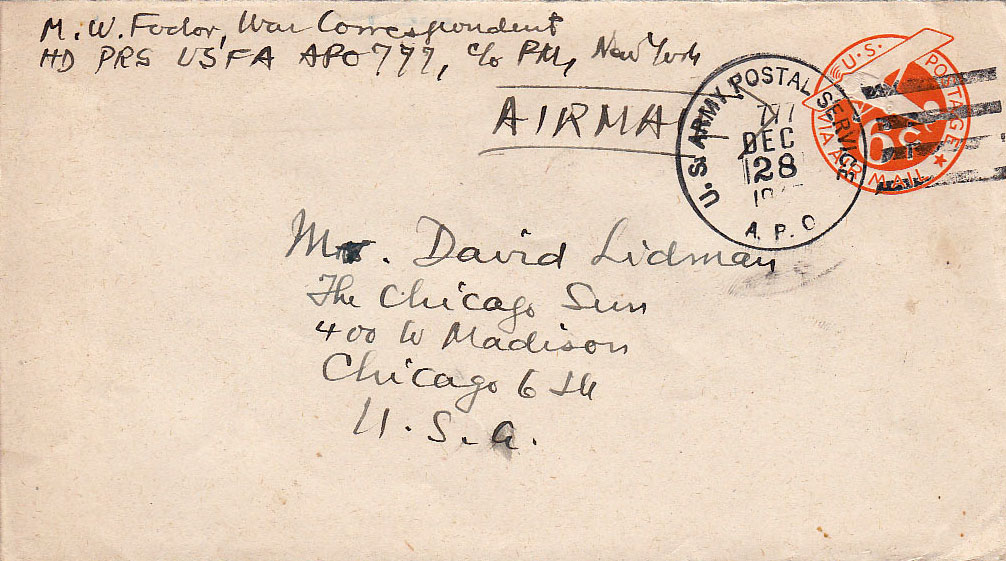 M. W. Fodor, War Correspondent
HD PRS USFA APO 777, c/o PM, New York
AIRMA
U.S. ARMY POSTAL SERVICE
777
DEC
28
A. P. O
U.S. POSTAGE
6c
VIA AIR MAIL
Mr. David Lidman
The Chicago Sun
400 W Madison
Chicago 6 Ill
U. S. A.